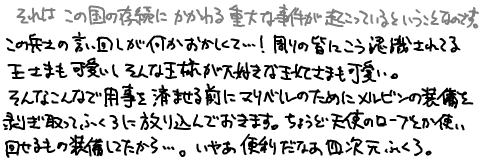 それは この国の存続に かかわる 重大な事件が 起こっているということなのです。
この兵士の言い回しが何かおかしくて…！周りの皆にこう認識されてる
王さまも可愛いしそんな王様が大好きな王妃さまも可愛い。
そんなこんなで用事を済ませる前にマリベルのためにメルビンの装備を
剥ぎ取ってふくろに放り込んでおきます。ちょうど天使のローブとか使い
回せるもの装備してたから…。いやあ便利だなあ四次元ふくろ。